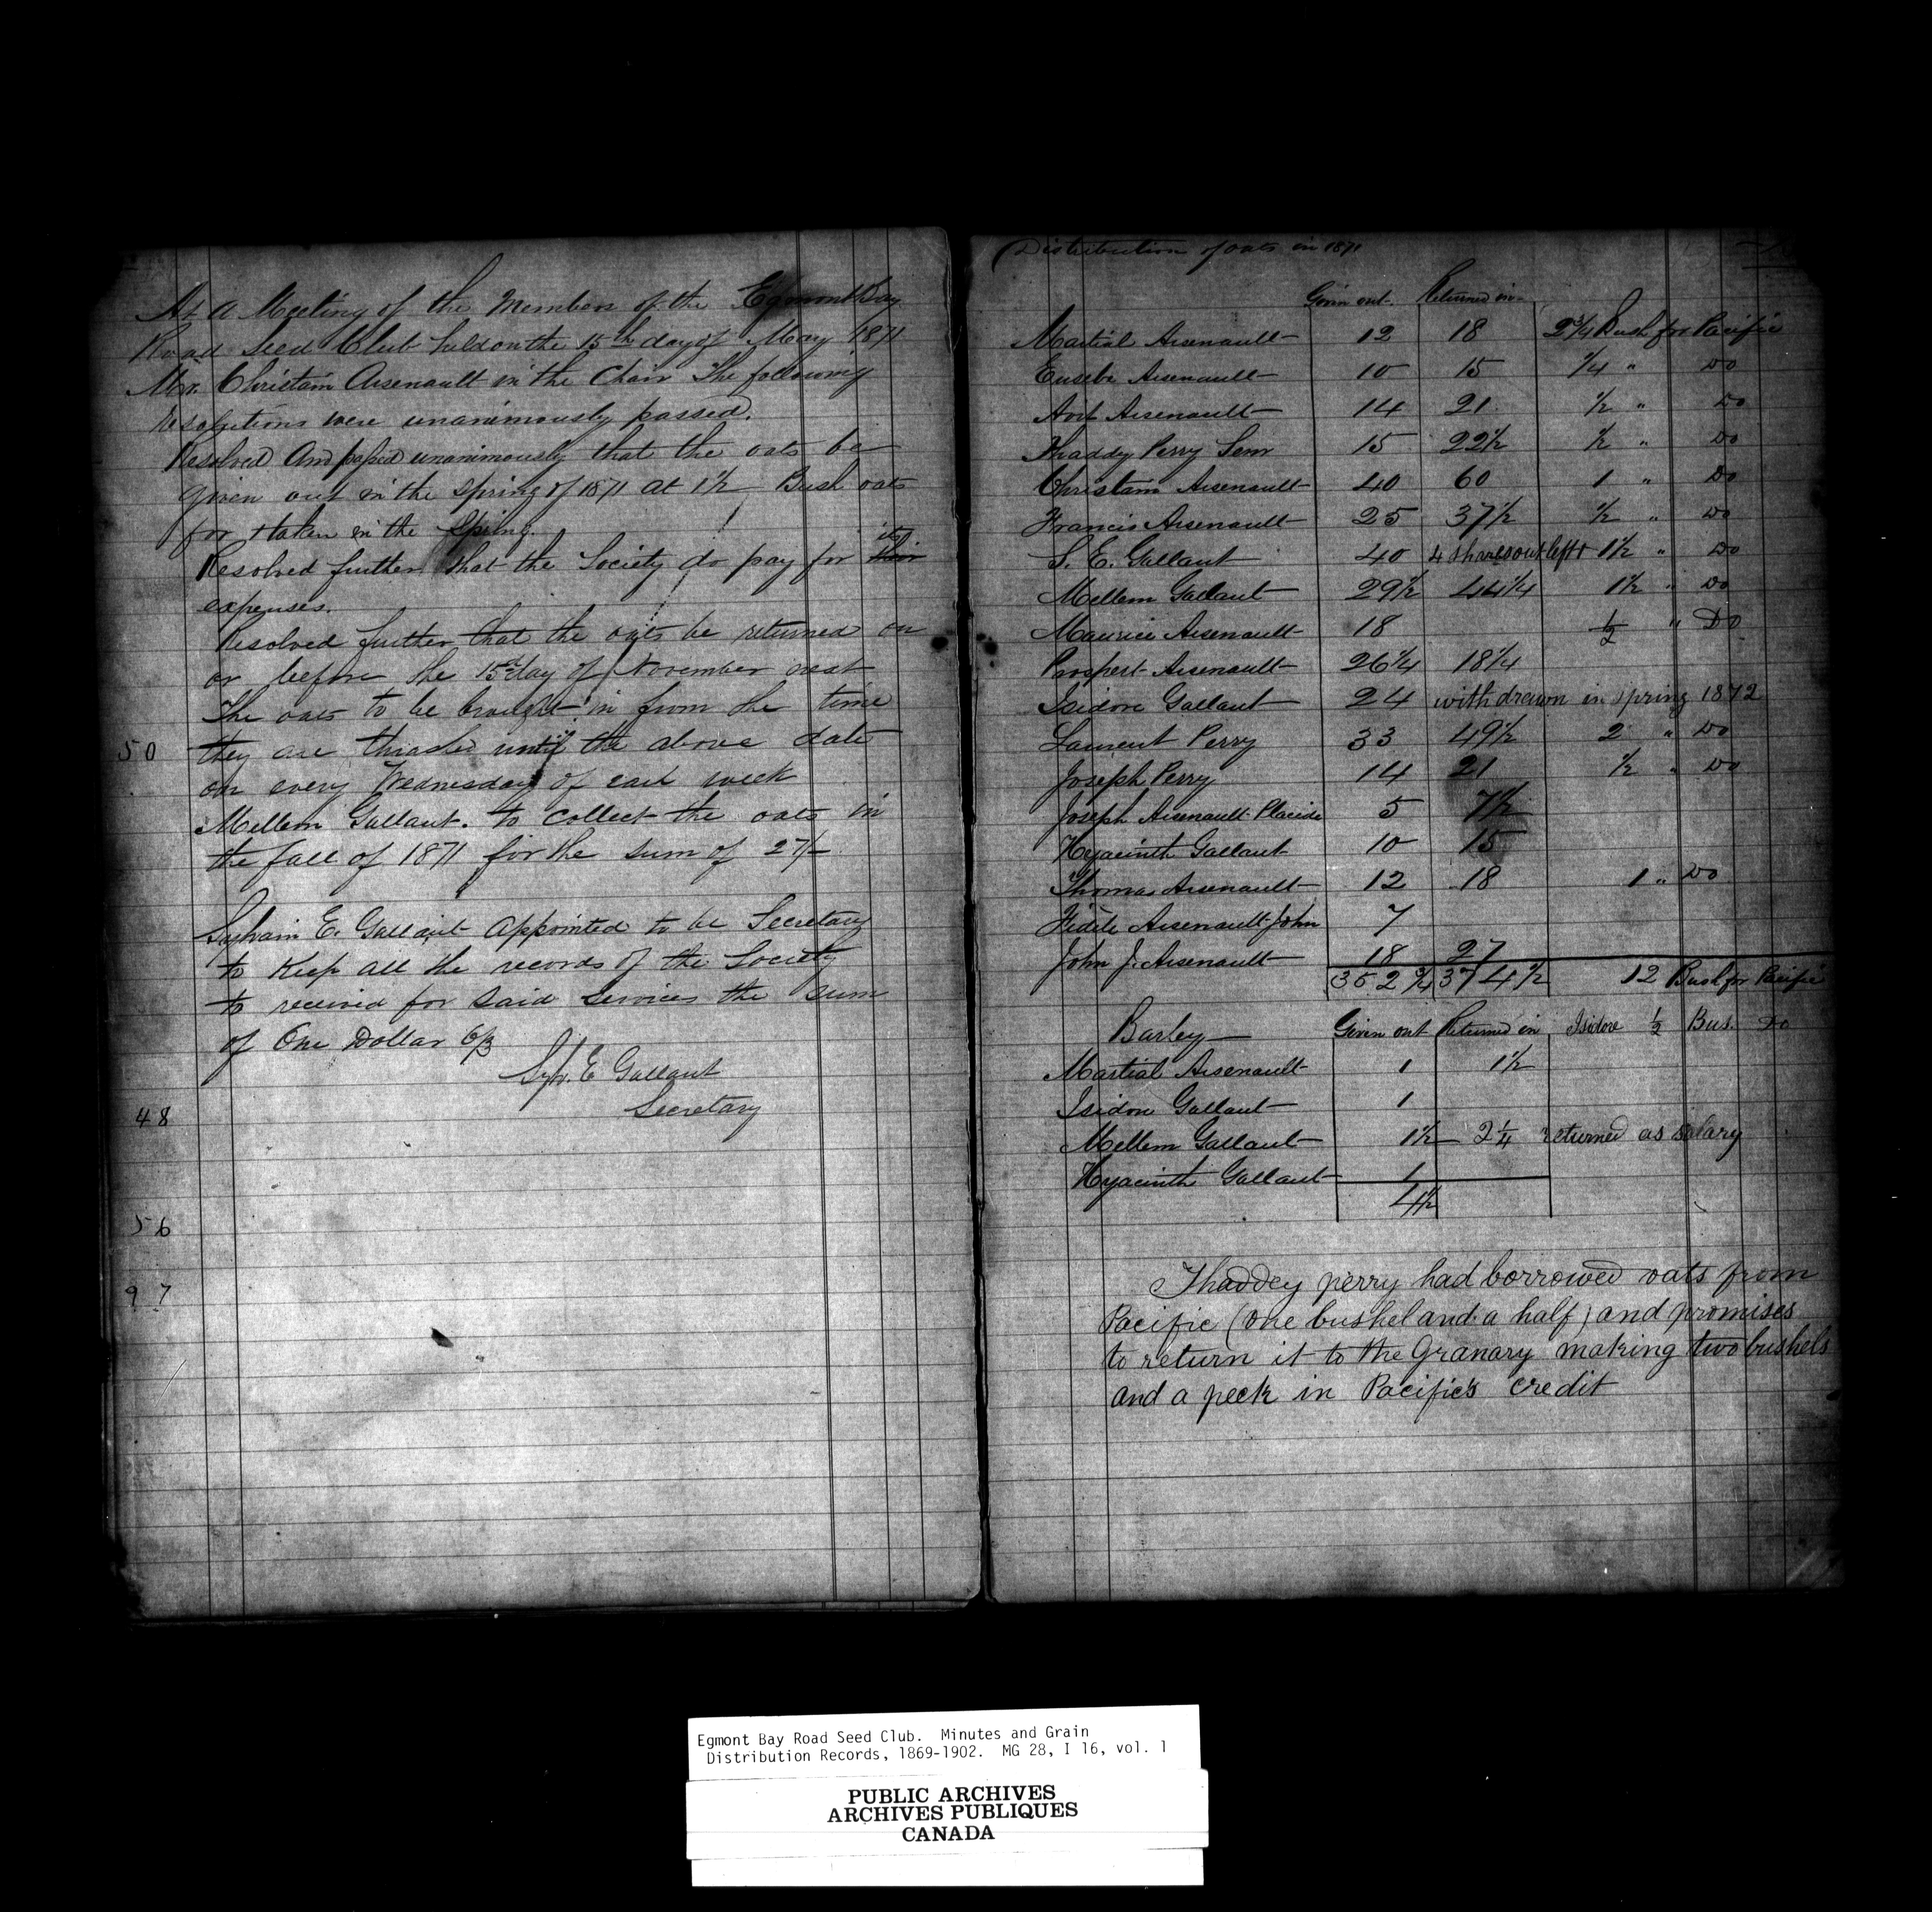 At a Meeting of the Members of the Egmont Bay
Road Seed Club held on the 15th day of May 1871
Mr. Christain Arsenault in the Chair The following
resolutions were unanimously passed.
Resolved And passed unanimously that the oats be
given out in the spring of 1871 at 1½ Bush oats
for 1 taken in the Spring.
Resolved further that the Society do pay for its
expenses.
Resolved further that the oats be returned on
or before the 15th day of November next
The oats to be brought in from the time
50 they are thrashed until the above date
on every Wednesday of each week
Mellem Gallant. to collect the oats in
the fall of 1871 for the sum of 27/-
Sylvain E. Gallant appointed to be Secretary
to Keep all the records of the Society
to received for said services the sum
of One Dollar 6/3
Syl. E Gallant
Secretary
48
56
97
Distribution of oats in 1871
Given out Returned in
Martial Arsenault 12 18 2¾ Bush for Pacific
Eusebe Arsenault 10 15 ¼ " Do
Arst Arsenault 14 21 ½ " Do
Thaddy Perry Senr 15 22½ ½ " Do
Christain Arsenault 40 60 1 " Do
Francis Arsenault 25 37½ ½ " Do
S. E. Gallant 40 4 shares out left 1½ " Do
Mellem Gallant 29½ 44¼ 1½ " Do
Maurice Arsenault 18 ½ " Do
Prospert Arsenault 26¼ 18¼
Isidore Gallant 24 with drawn in spring 1872
Laurent Perry 33 49½ 2 " Do
Joseph Perry 14 21 ½ " Do
Joseph Arsenault Placide 5 7½
Hyacinth Gallant 10 15
Thomas Arsenault 12 18 1 " Do
Fidele Arsenault John 7
John J. Arsenault 18 27
352¾ 374½ 12 Bush for Pacific
Barley Given out Returned in Isidore ½ Bus. Do
Martial Arsenault 1 1½
Isidore Gallant 1
Mellem Gallant 1½ 2¼ returned as salary
Hyacinth Gallant 1
4½
Thaddey perry had borrowed oats from
Pacific (one bushel and a half) and promises
to return it to the Granary making two bushels
and a peck in Pacific's credit
Egmont Bay Road Seed Club. Minutes and Grain
Distribution Records, 1869-1902. MG 28, I 16, vol. 1
PUBLIC ARCHIVES
ARCHIVES PUBLIQUES
CANADA